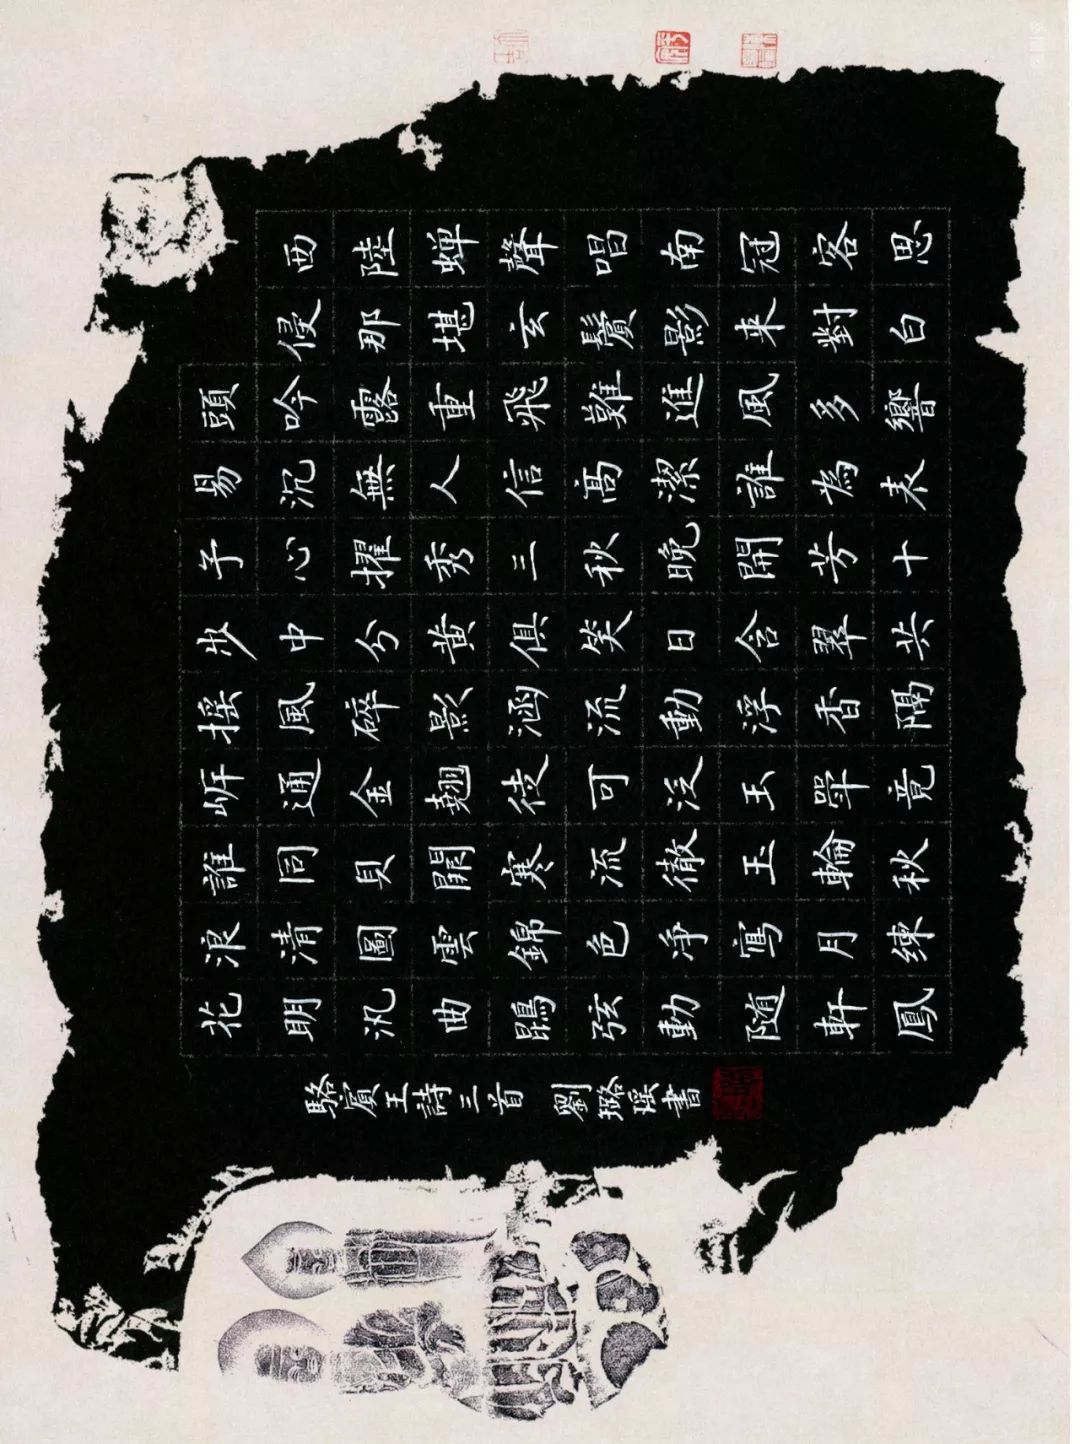 西陸蟬聲唱南冠客思
侵那堪玄鬢影来對白
頭吟露重飛難進風多響
易沉無人信高潔誰為表
予心擢秀三秋晚開芳十
步中兮黄俱笑日含翠共
揺風碎影涵流動浮香隔
岸通金翹徒可泛玉斝竟
誰同貝闕寒流徹玉輪秋
浪清圖雲錦色淨寫月練
花明汎曲鵾弦動随軒鳳
駱賓王詩三首 劉璐瑶書